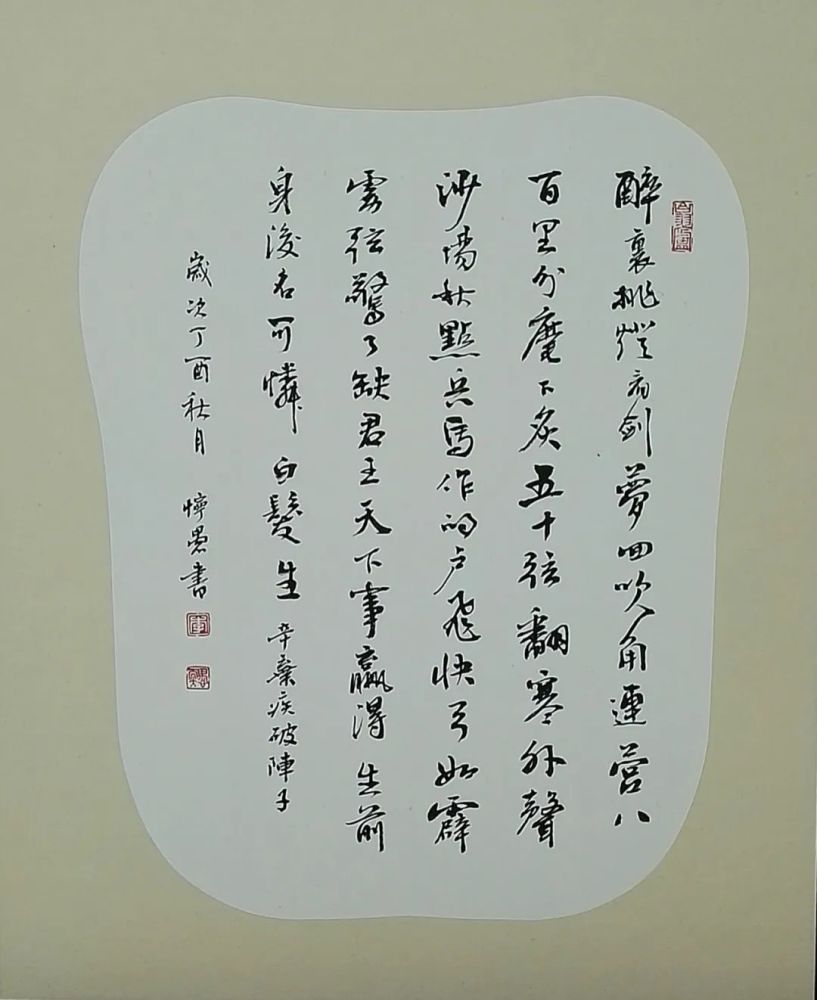 醉裏挑燈看剑夢回吹角連营八
百里分麾下炙五十弦翻塞外聲
沙場秋點兵馬作的卢飛快弓如霹
雳弦驚了缺君王天下事贏得生前
身後名可憐白髮生 辛棄疾破陣子
歲次丁酉秋月 愚書